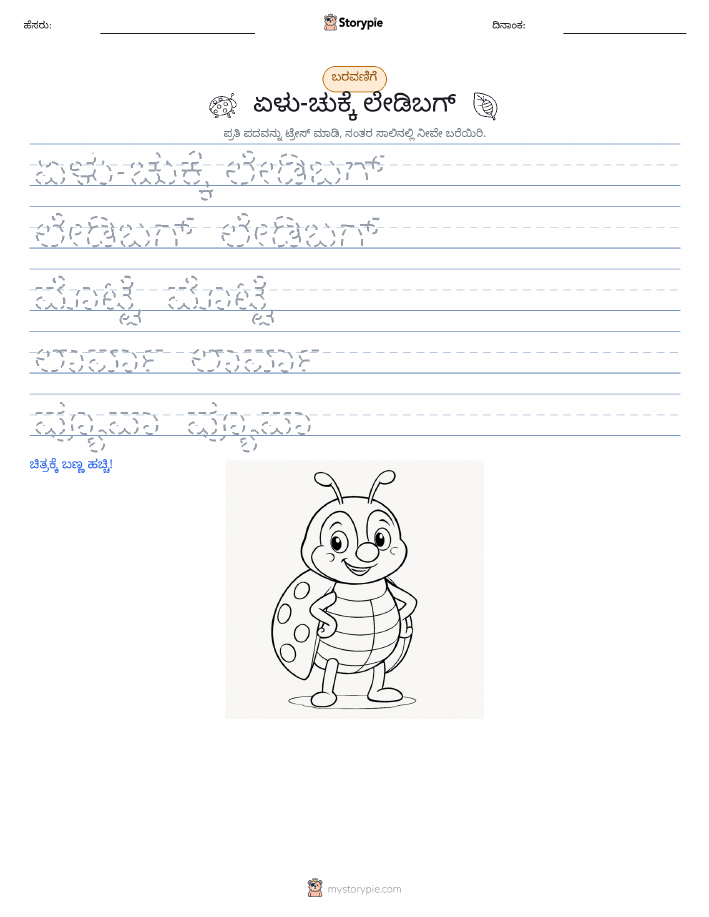 ಹೆಸರು: Storypie ದಿನಾಂಕ:
ಬರವಣಿಗೆ
ಏಳು-ಚುಕ್ಕೆ ಲೇಡಿಬಗ್
ಪ್ರತಿ ಪದವನ್ನು ಟ್ರೇಸ್ ಮಾಡಿ, ನಂತರ ಸಾಲಿನಲ್ಲಿ ನೀವೇ ಬರೆಯಿರಿ.
ಏಳು-ಚುಕ್ಕೆ ಲೇಡಿಬಗ್
ಲೇಡಿಬಗ್ ಲೇಡಿಬಗ್
ಮೊಟ್ಟೆ ಮೊಟ್ಟೆ
ಲಾರ್ವಾ ಲಾರ್ವಾ
ಪ್ಯೂಪಾ ಪ್ಯೂಪಾ
ಚಿತ್ರಕ್ಕೆ ಬಣ್ಣ ಹಚ್ಚಿ!
mystorypie.com